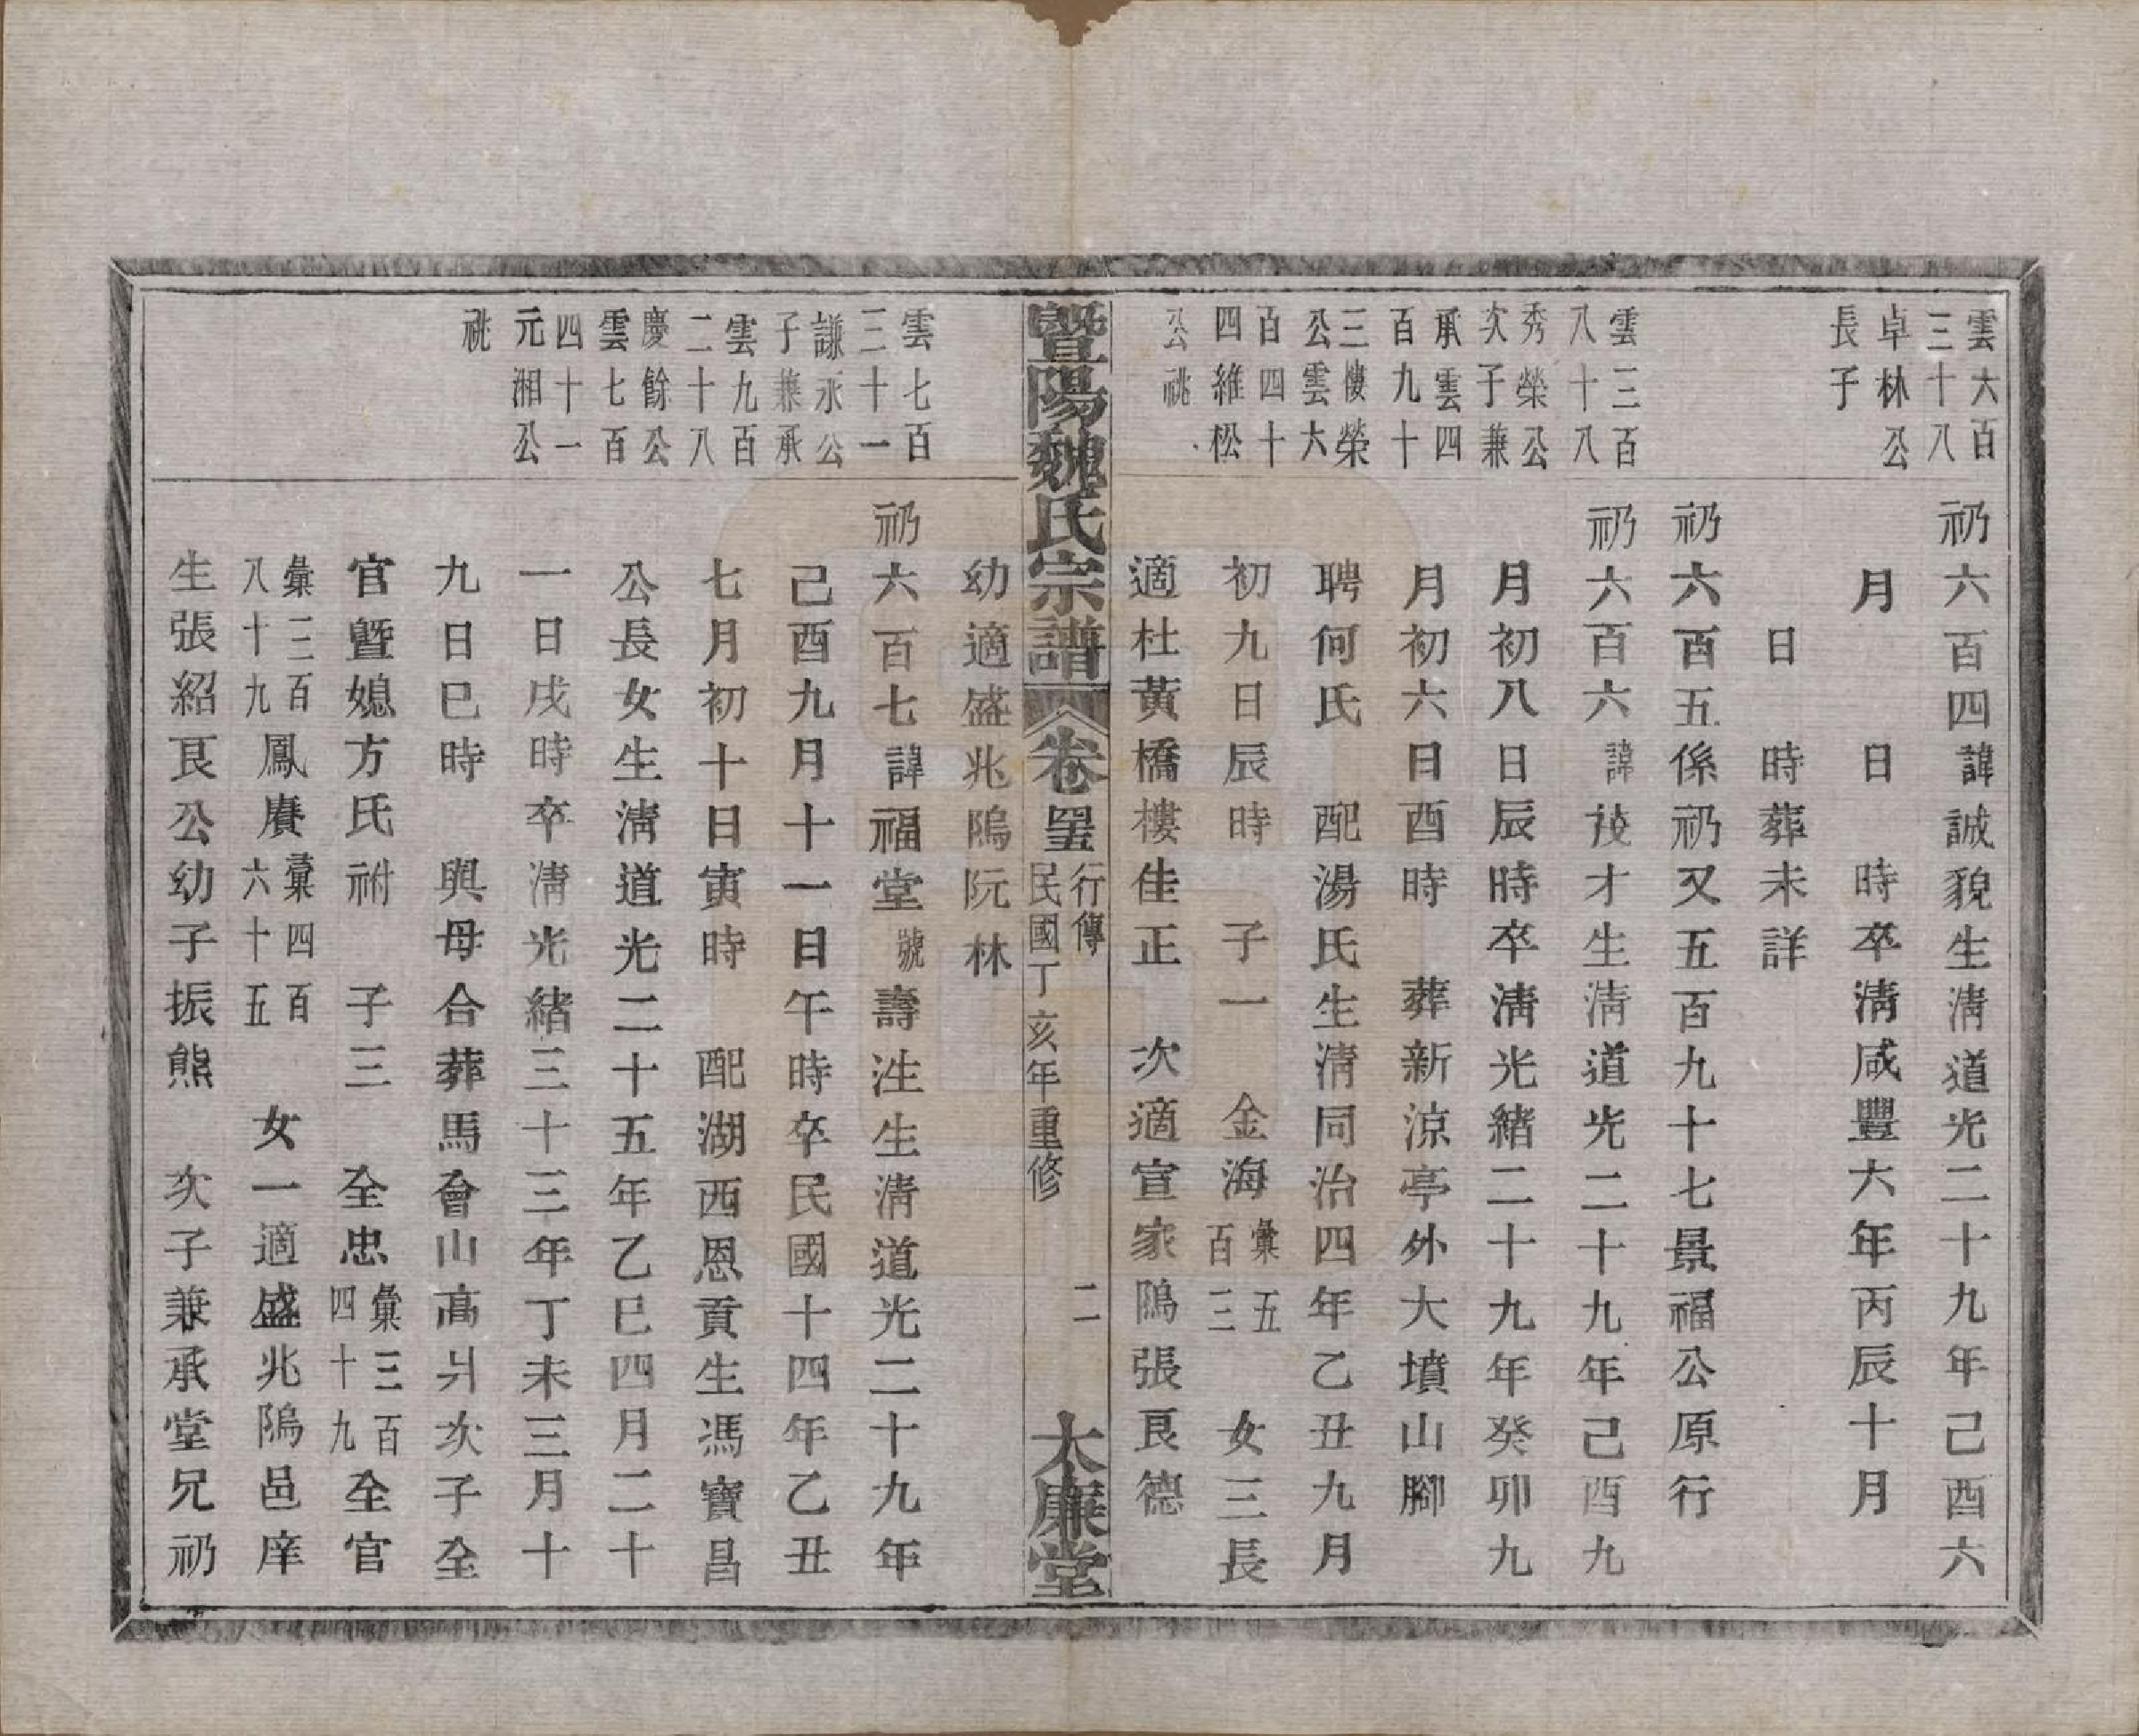 雲六百
三十八
卓林公
長子
祁六百四諱誠貌生淸道光二十九年己酉六
月　日　時卒淸咸豐六年丙辰十月
日　時葬未詳
祁六百五係祁又五百九十七景福公原行
雲三百
八十八
秀榮公
次子兼
承雲四
百九十
三樓榮
公雲六
百四十
四維松
公祧
祁六百六諱茂才生淸道光二十九年己酉九
月初八日辰時卒淸光緒二十九年癸卯九
月初六日酉時　葬新涼亭外大墳山腳
聘何氏　配湯氏生淸同治四年乙丑九月
初九日辰時　子一　金海彙五百三　女三長
適杜黃橋樓佳正　次適宣家隖張艮德
幼適盛兆隖阮林
暨陽魏氏宗譜　卷　行傳　民國丁亥年重修　二　大廉堂
雲七百
三十一
謙永公
子兼承
雲九百
二十八
慶餘公
雲七百
四十一
元湘公
祧
祁六百七諱福堂號壽泩生淸道光二十九年
己酉九月十一日午時卒民國十四年乙丑
七月初十日寅時　配湖西恩貢生馮寶昌
公長女生淸道光二十五年乙巳四月二十
一日戌時卒淸光緒三十三年丁未三月十
九日巳時　與母合葬馬會山高爿次子全
官曁媳方氏祔　子三　全忠彙三百四十九全官
彙三百八十九鳳賡彙四百六十五　女一適盛兆隖邑庠
生張紹艮公幼子振熊　次子兼承堂兄祁